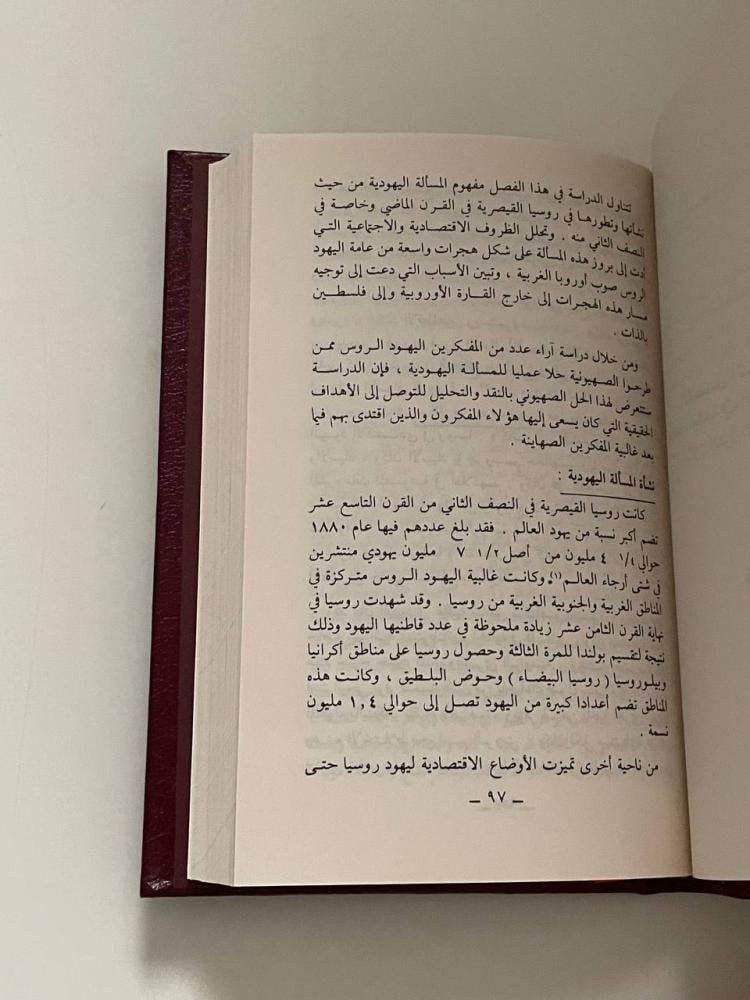 تتناول الدراسة في هذا الفصل مفهوم المسألة اليهودية من حيث
نشأتها وتطورها في روسيا القيصرية في القرن الماضي وخاصة في
النصف الثاني منه . وتحلل الظروف الاقتصادية والاجتماعية التي
أدت إلى بروز هذه المسألة على شكل هجرات واسعة من عامة اليهود
الروس صوب أوروبا الغربية ، وتبين الأسباب التي دعت إلى توجيه
مسار هذه الهجرات إلى خارج القارة الأوروبية وإلى فلسطين
بالذات .
ومن خلال دراسة آراء عدد من المفكرين اليهود الروس ممن
طرحوا الصهيونية حلا عمليا للمسألة اليهودية ، فإن الدراسة
ستتعرض لهذا الحل الصهيوني بالنقد والتحليل للتوصل إلى الأهداف
الحقيقية التي كان يسعى إليها هؤلاء المفكرون والذين اقتدى بهم فيما
بعد غالبية المفكرين الصهاينة .
نشأة المسألة اليهودية :
كانت روسيا القيصرية في النصف الثاني من القرن التاسع عشر
تضم أكبر نسبة من يهود العالم . فقد بلغ عددهم فيها عام ١٨٨٠
حوالي ١/٤ ٤ مليون من أصل ١/٢ ٧ مليون يهودي منتشرين
في شتى أرجاء العالم(١). وكانت غالبية اليهود الروس متركزة في
المناطق الغربية والجنوبية الغربية من روسيا . وقد شهدت روسيا في
نهاية القرن الثامن عشر زيادة ملحوظة في عدد قاطنيها اليهود وذلك
نتيجة لتقسيم بولندا للمرة الثالثة وحصول روسيا على مناطق أكرانيا
وبيلوروسيا ( روسيا البيضاء ) وحوض البلطيق ، وكانت هذه
المناطق تضم أعدادا كبيرة من اليهود تصل إلى حوالي ١,٤ مليون
نسمة .
من ناحية أخرى تميزت الأوضاع الاقتصادية ليهود روسيا حتى
– ٩٧ –